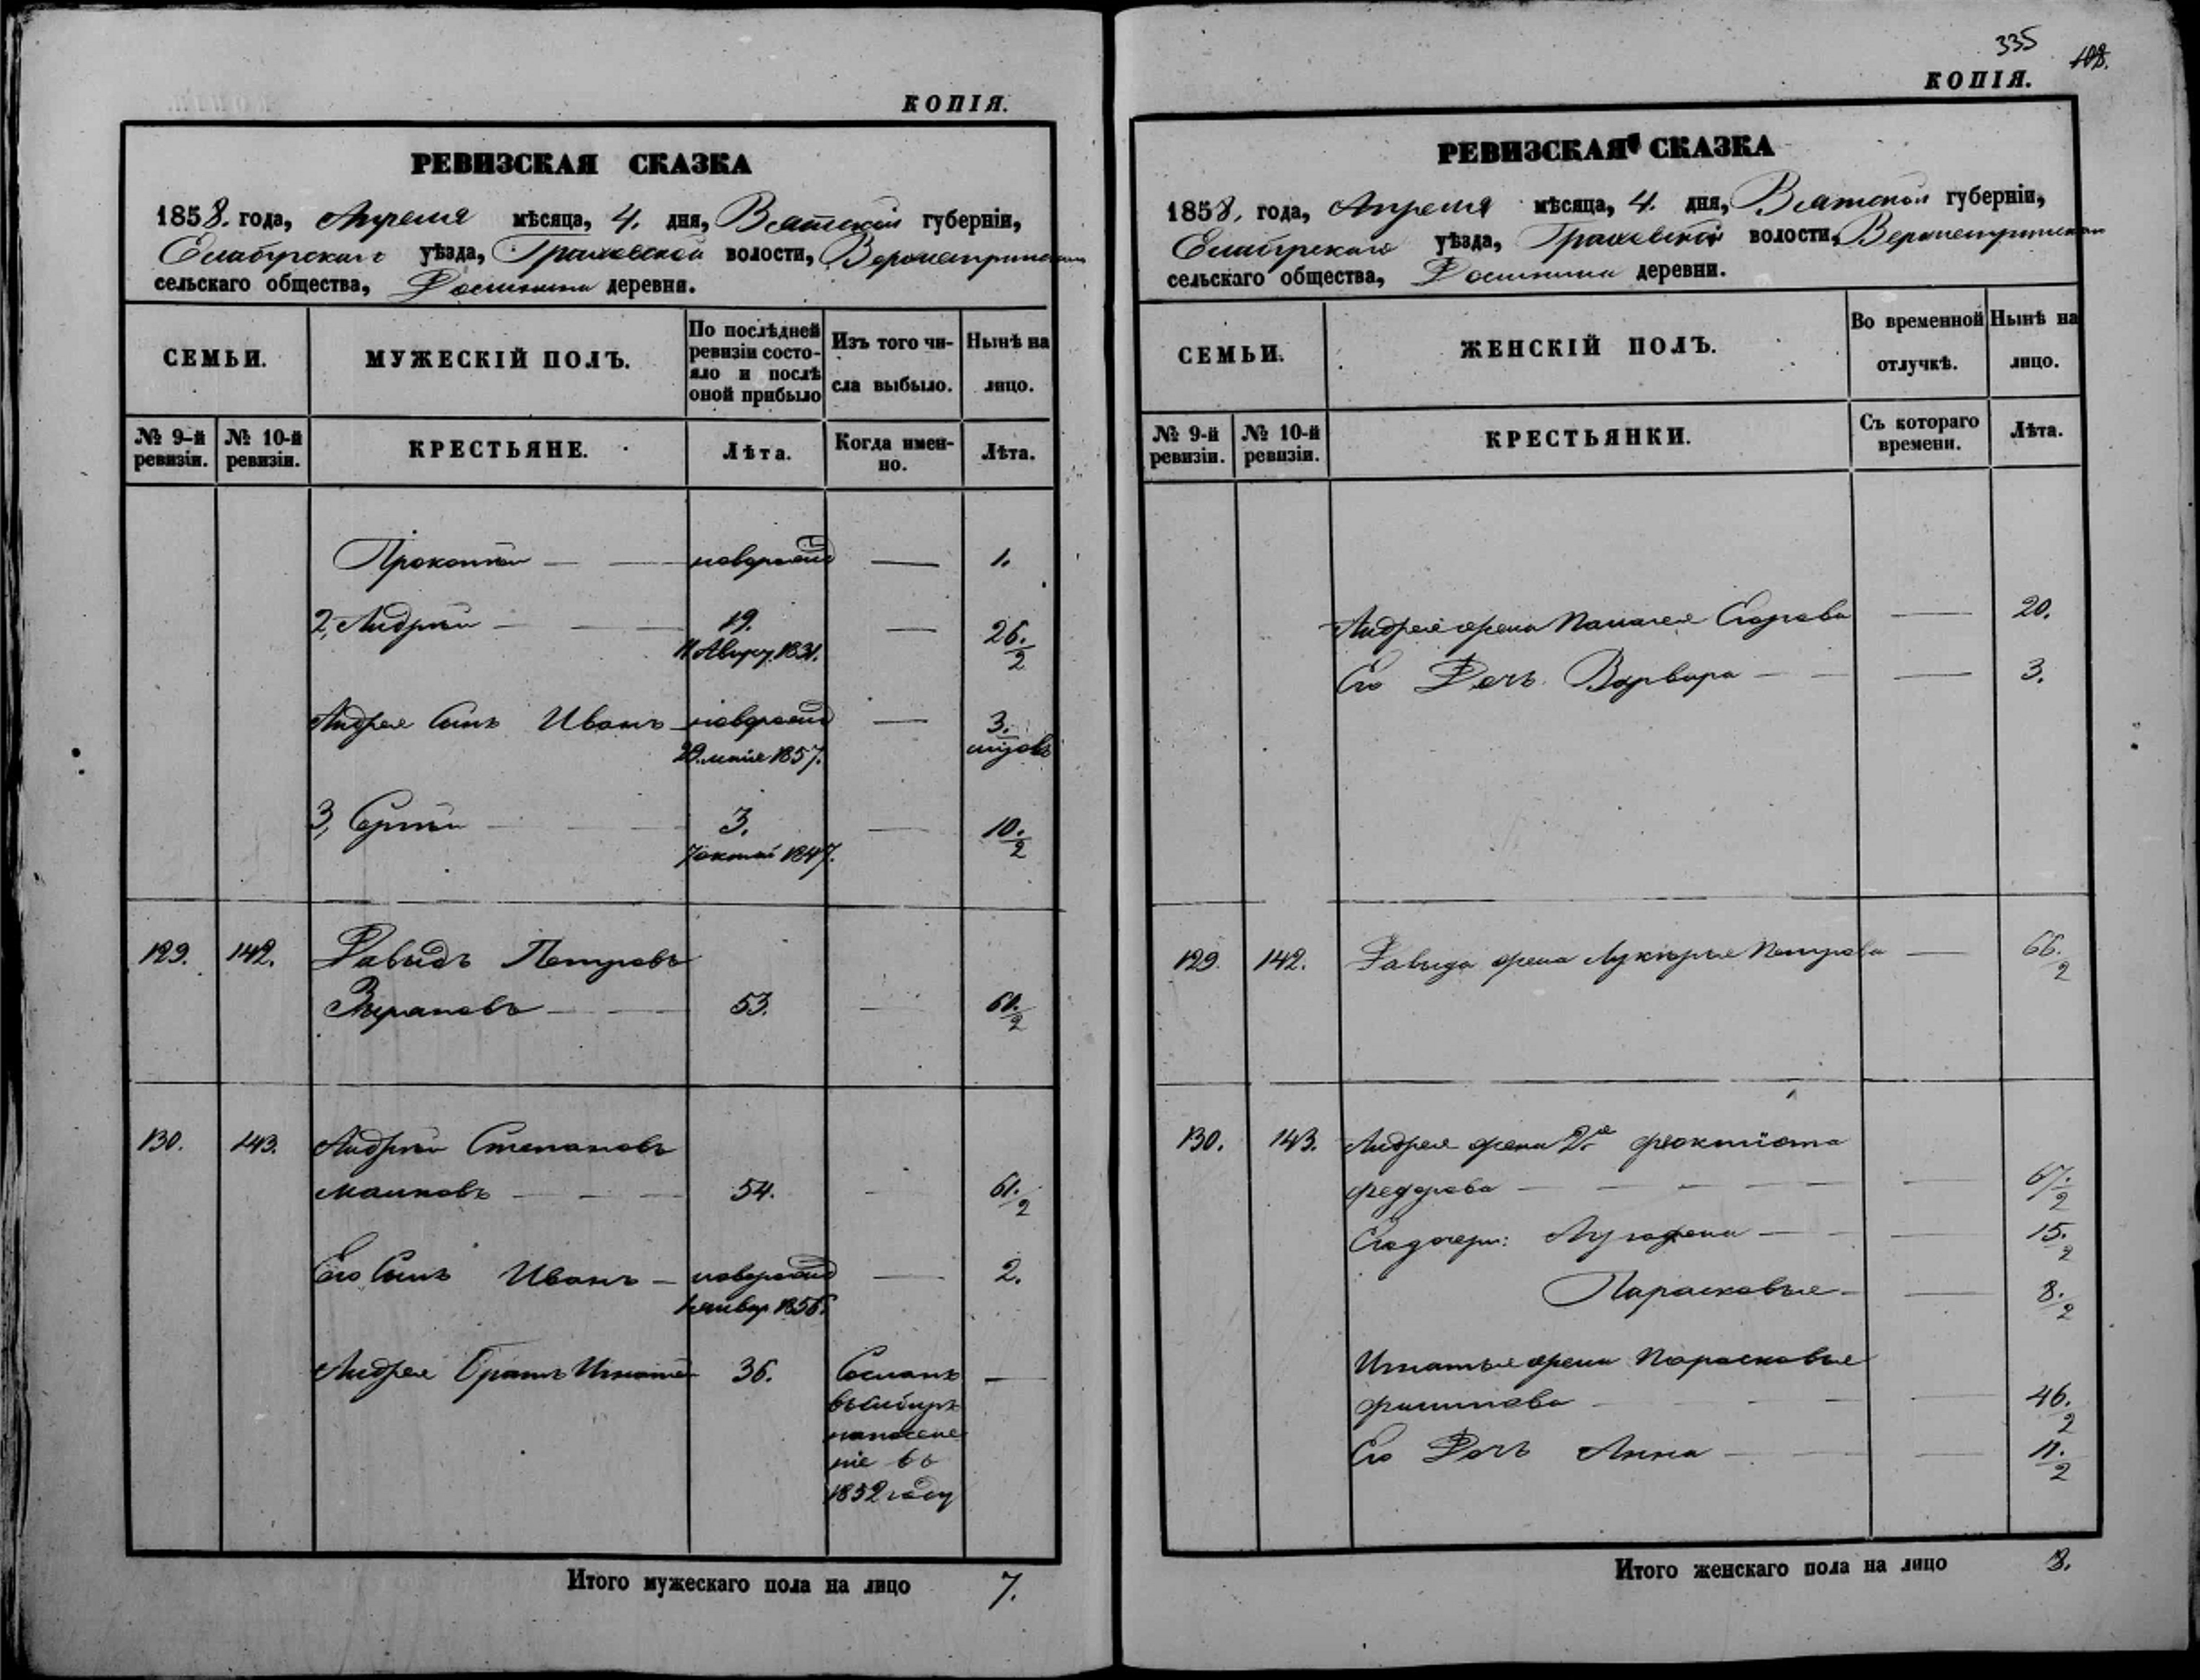 КОПІЯ.
РЕВИЗСКАЯ СКАЗКА
1858. года, Апреля мѣсяца, 4. дня, Вятской губерніи,
Елабугскаго уѣзда, Граховской волости,
сельскаго общества, деревня.
СЕМЬИ.
МУЖЕСКІЙ ПОЛЪ.
По послѣдней
ревизіи состо-
яло и послѣ
оной прибыло
Изъ того чи-
сла выбыло.
Нынѣ на
лицо.
№ 9-й
ревизіи.
№ 10-й
ревизіи.
КРЕСТЬЯНЕ.
Лѣта.
Когда имен-
но.
Лѣта.
Прокопій — — новорожд — 1.
2, Андрей — — 19. — 26. ½
11 Август. 1831.
Андрея Сынъ Иванъ новорожд — 3.
29. мая 1857.
3, Сергѣй — — 3. — 10. ½
7 октяб 1847.
129. 142. Давыдъ Петровъ
53. — 60. ½
130. 143. Андрей Степановъ
54. - 61. ½
Его Сынъ Иванъ — новорожд — 2.
1856.
Андрея Братъ Игнатій 36. Сосланъ —
въ Сибирь
на поселе
ніе въ
1852 году
Итого мужескаго пола на лицо 7.
335
108.
КОПІЯ.
РЕВИЗСКАЯ СКАЗКА
1858. года, Апреля мѣсяца, 4. дня, Вятской губерніи,
Елабугскаго уѣзда, Граховской волости,
сельскаго общества, деревни.
СЕМЬИ.
ЖЕНСКІЙ ПОЛЪ.
Во временной
отлучкѣ.
Нынѣ на
лицо.
№ 9-й
ревизіи.
№ 10-й
ревизіи.
КРЕСТЬЯНКИ.
Съ котораго
времени.
Лѣта.
Андрея жена Егорова — 20.
Его Дочь Варвара — — — 3.
129. 142. Давыда жена Лукерья Петрова — 66. ½
130. 143. Андрея жена 2я феоктиста
федорова — — — — — — 67. ½
15. ½
Парасковья — — 8. ½
Игнатья жена Парасковья
филипова — — — 46. ½
Его Дочь Анна — — — 11. ½
Итого женскаго пола на лицо 8.